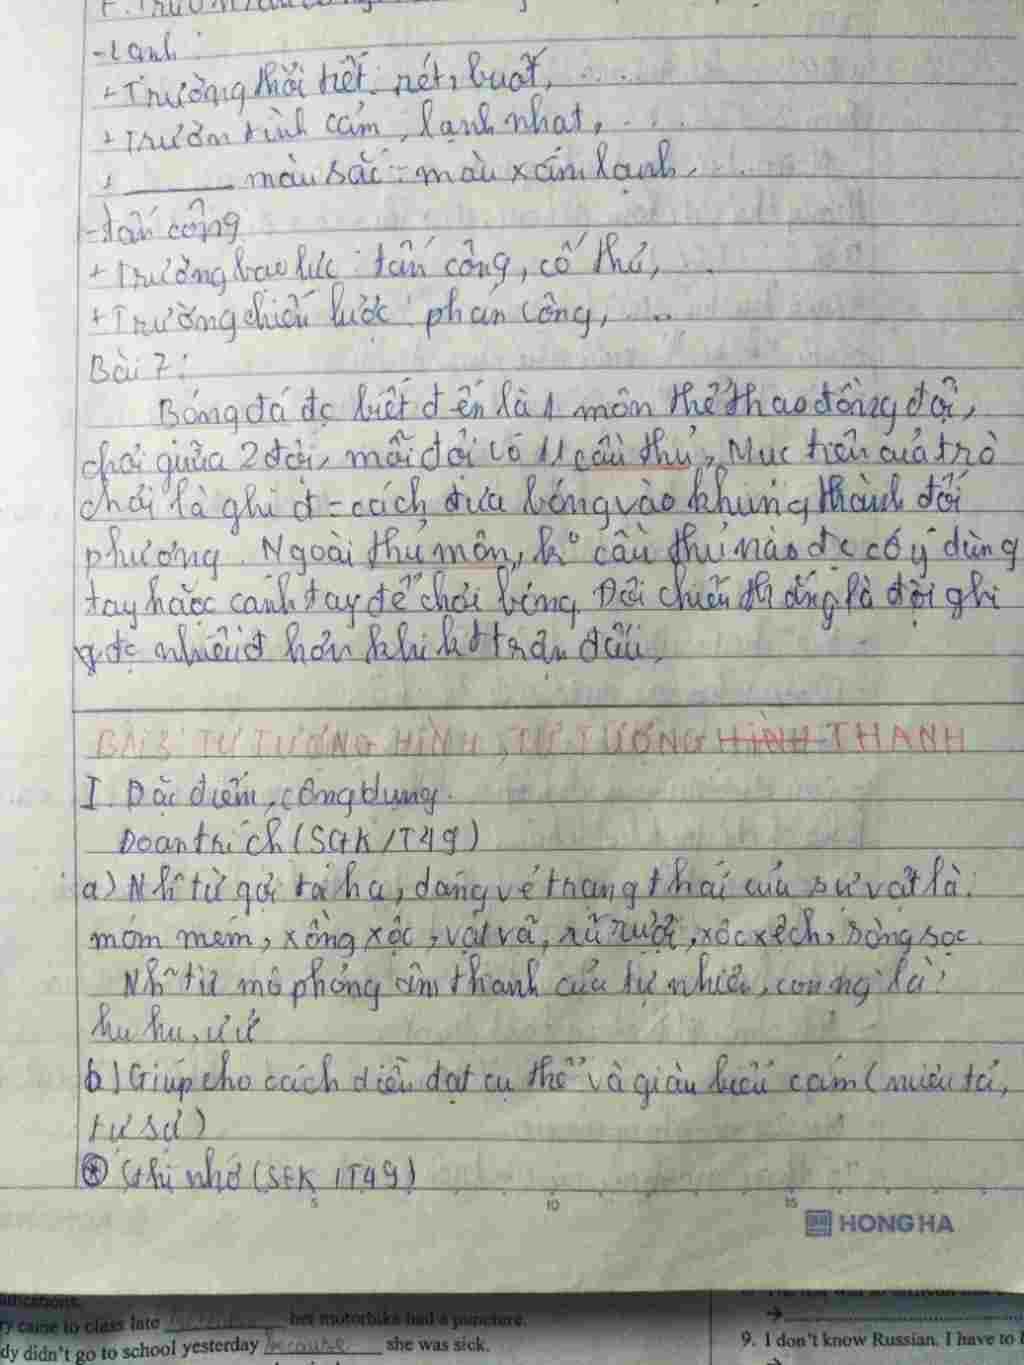 - Lạnh:
+ Trường thời tiết: rét, buốt, ....
+ Trườn tình cảm, lạnh nhạt, ...
+ ______ màu sắc: màu xám lạnh, ...
- tấn công
+ Trường bạo lực: tấn công, cố thủ, ..
+ Trường chiến lược: phản công, ...
Bài 7:
Bóng đá đc biết đến là 1 môn thể thao đồng đội,
chơi giữa 2 đội, mỗi đội có 11 cầu thủ, Mục tiêu của trò
chơi là ghi đ = cách đưa bóng vào khung thành đối
phương. Ngoài thủ môn, ko cầu thủ nào đc cố ý dùng
tay hặc cánh tay để chơi bóng. Đội chiến thắng là đội ghi
đc nhiều đ hơn khi kt trận đấu.
BÀI 3: TỪ TƯỢNG HÌNH, TỪ TƯỢNG HÌNH THANH
I. Đặc điểm, công dụng.
Đoạn trích (SGK/T49)
a) Nh~ từ gợi tả h/a, dáng vẻ trạng thái của sự vật là:
móm mém, xồng xộc, vật vã, rũ rượi, xộc xệch, sòng sọc.
Nh~ từ mô phỏng âm thanh của tự nhiên, con ng` là:
hu hu, ư ử
b) Giúp cho cách diễn đạt cụ thể và giàu biểu cảm (miêu tả,
tự sự)
* Ghi nhớ (SGK/T49)
5 10 15
HONG HA
y came to class late because her motorbike had a puncture.
dy didn't go to school yesterday because she was sick.
9. I don't know Russian. I have to